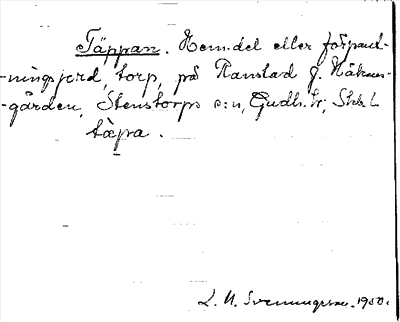 Täppan. Hem.del eller förpant-
-ningsjord, torp, på Ranstad g. Håkans-
-gården, Stenstorps s:n, Gudh. hr; Skbl L
täpa.
L. U. Svenungsson. 1930.